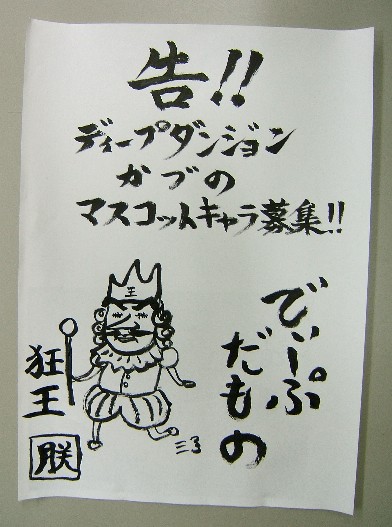 告!!
ディープダンジョン
かづの
マスコットキャラ募集!!
でぃーぷ
だもの
王
狂王
朕